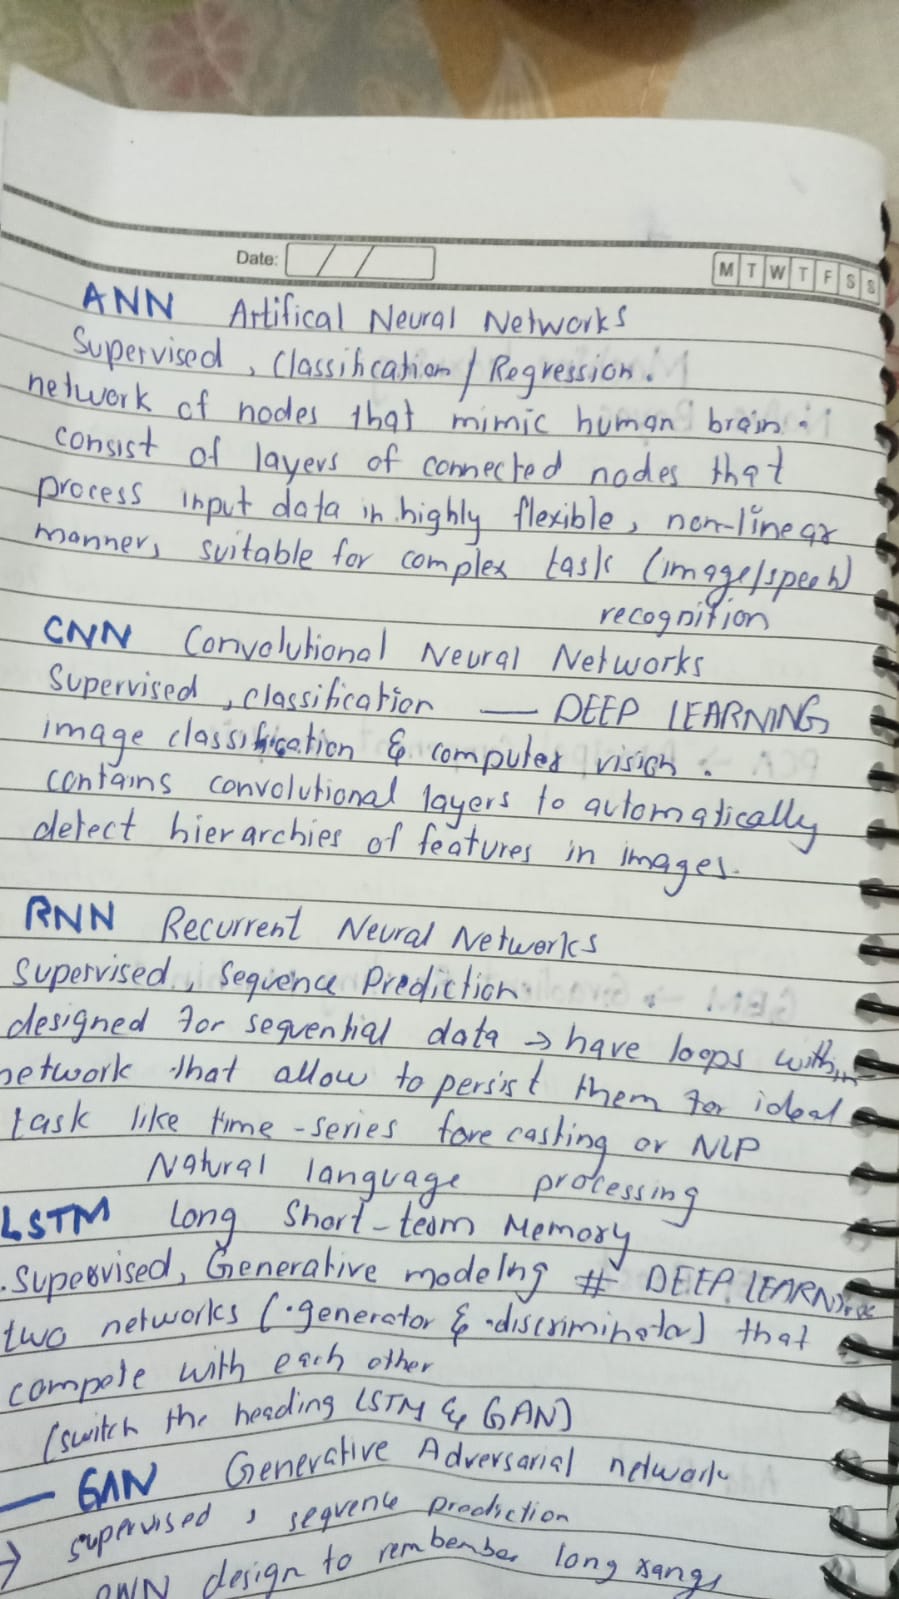 Date: / /
M T W T F S S
ANN Artifical Neural Networks
Supervised, Classification / Regression.
network of nodes that mimic human brain.
consist of layers of connected nodes that
process input data in highly flexible, non-linear
manner, suitable for complex task (image/speeh)
recognition
CNN Convolutional Neural Networks
Supervised, classification — DEEP LEARNING
image classification & computer vision.
contains convolutional layers to automatically
detect hierarchies of features in images.
RNN Recurrent Neural Networks
Supervised, Sequence Prediction
designed for sequential data → have loops within
network that allow to persist them for ideal
task like time-series forecasting or NLP
Natural language processing
LSTM Long Short-team Memory
Supervised, Generative modelng # DEEP LEARNING
two networks (·generator & ·discriminator) that
compete with each other
(switch the heading LSTM & GAN)
— GAN Generative Adversarial network
→ supervised, sequence prediction
RNN design to rembember long range